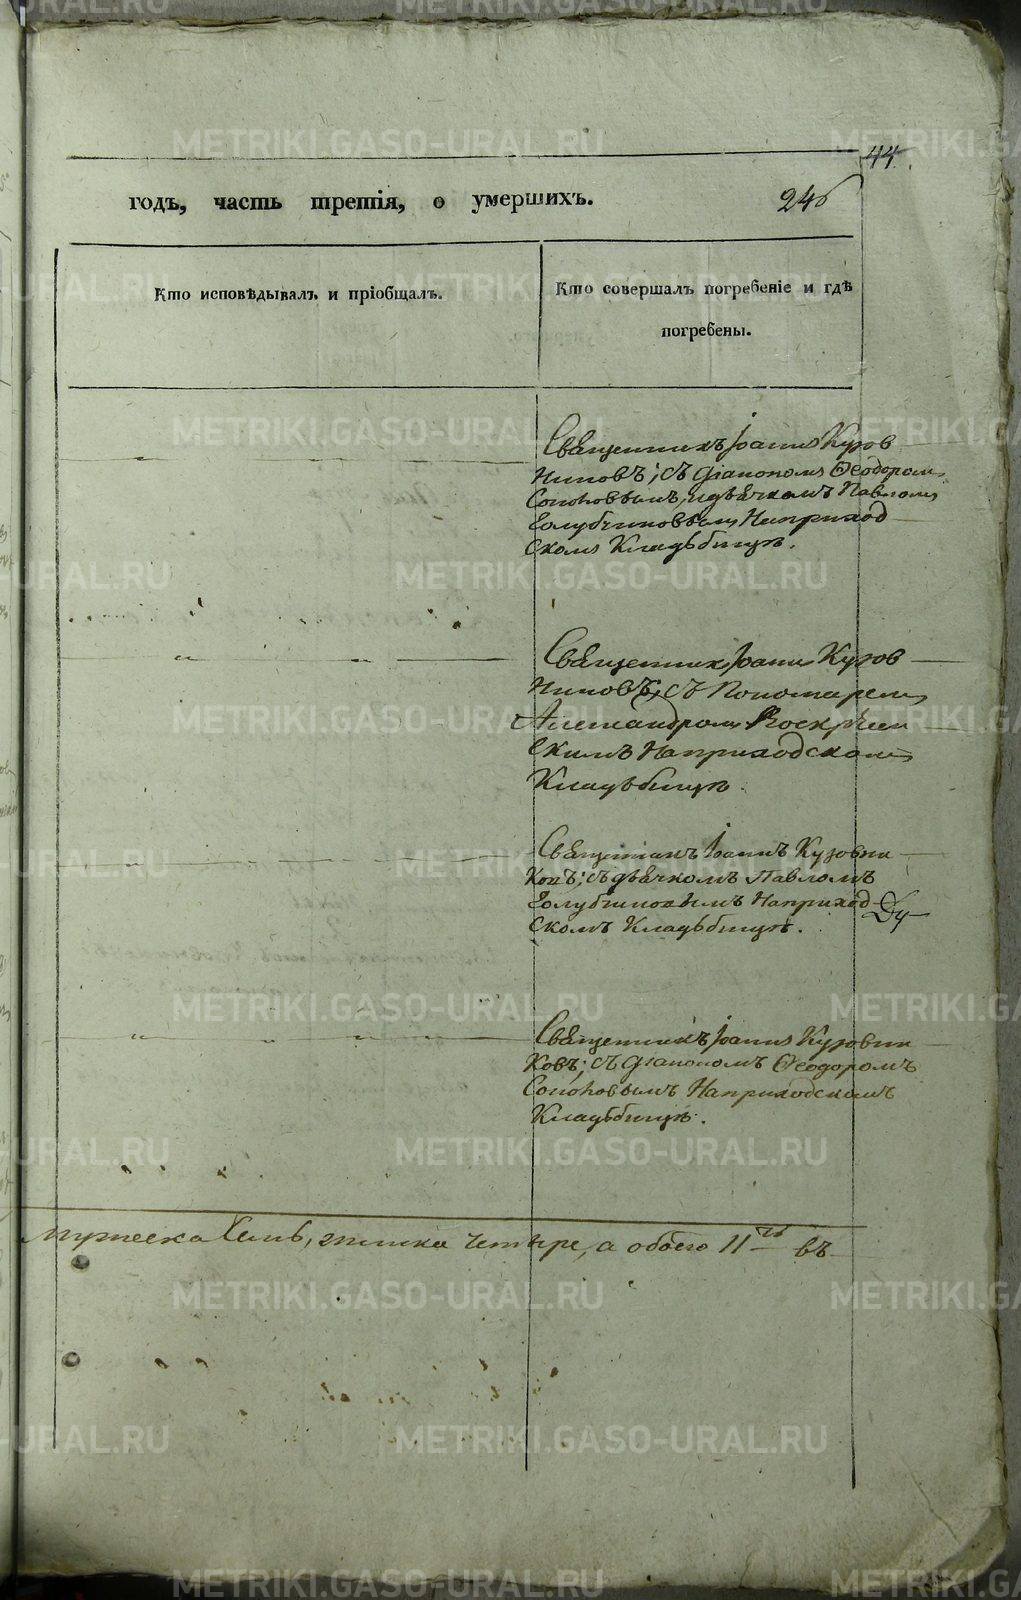 44
годъ, часть третія, о умершихъ.
246
Кто исповѣдывалъ и пріобщалъ.
Кто совершалъ погребеніе и гдѣ
погребены.
Священникъ Іоаннъ Кузов
никовъ; съ діакономъ Ѳеодоромъ
и дьячкомъ Павломъ
Голубчиковымъ На приход
скомъ Кладьбищѣ.
Священникъ Іоаннъ Кузов
никовъ, съ Пономаремъ
Александромъ Воскресен
скимъ На приходскомъ
Кладьбищѣ.
Священникъ Іоаннъ Кузовни
ковъ; съ дьячкомъ Павломъ
Голубчиковымъ На приход
скомъ Кладьбищѣ.
Священникъ Іоаннъ Кузовни
ковъ; съ діакономъ Ѳеодоромъ
На приходскомъ
Кладьбищѣ.
мужеска Семь, женска четыре, а обоего 11ть
METRIKI.GASO-URAL.RU